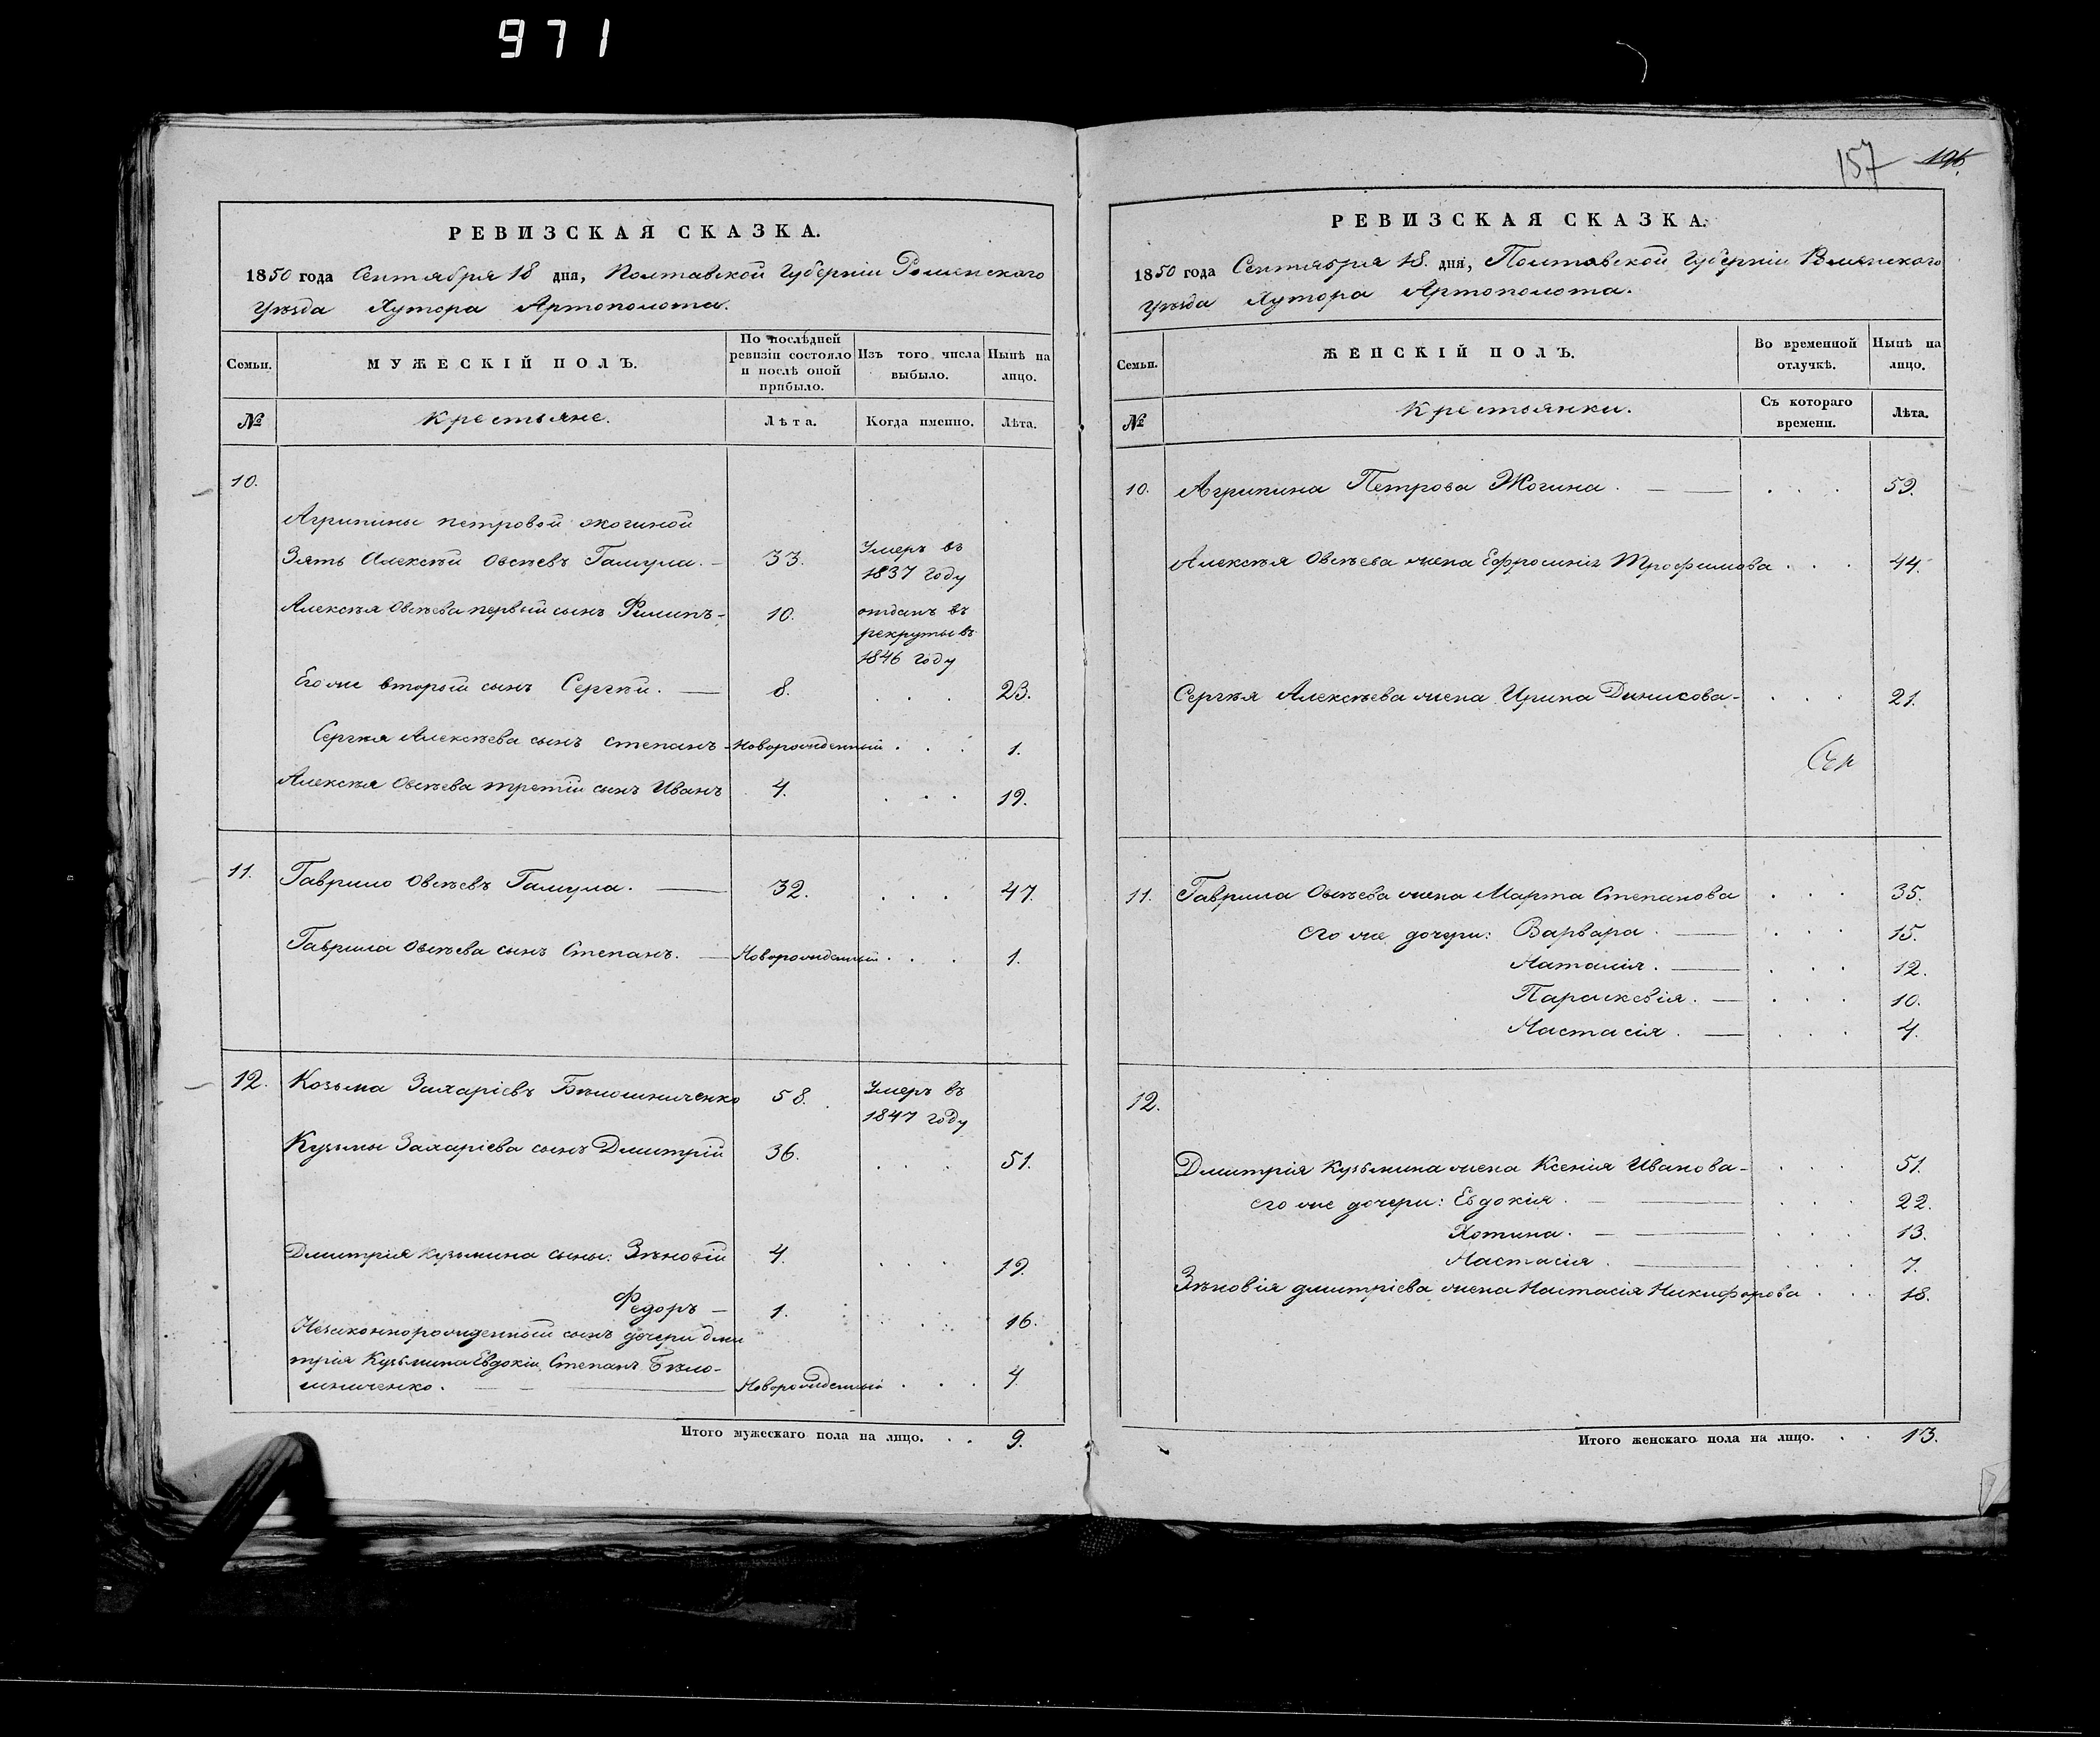 971
РЕВИЗСКАЯ СКАЗКА.
1850 года Сентября 18 дня, Полтавской Губерніи Роменского
Уѣзда Хутора Артополота.
Семьи.
МУЖЕСКІЙ ПОЛЪ.
По послѣдней ревизіи состояло и послѣ оной прибыло.
Изъ того числа выбыло.
Нынѣ на лицо.
№
Крестьяне.
Лѣта.
Когда именно.
Лѣта.
10.
Агрипины петровой жогиной
Зять Алексѣй Овсѣевъ Гамула. 33. Умеръ въ 1837 году
Алексѣя Овсѣева первый сынъ Филипъ 10. отданъ въ рекруты въ 1846 году
Его же второй сынъ Сергѣй. 8. . . . 23.
Сергѣя Алексѣева сынъ Степанъ Новорожденный . . . 1.
Алексѣя Овсѣева третій сынъ Иванъ 4. . . . 19.
11. Гаврило Овсѣевъ Гамула. 32. . . . 47.
Гаврила Овсѣева сынъ Степанъ. Новорожденный . . . 1.
12. Козьма Захаріевъ Бѣлошниченко 58. Умеръ въ 1847 году
Кузьмы Захаріева сынъ Дмитрій 36. . . . 51.
Дмитрія Кузьмина сыны: Зѣновій 4. . . . 19.
Федоръ 1. . . . 16.
Незаконнорожденный сынъ дочери Дми
трія Кузьмина Евдокіи Степанъ Бѣло-
шниченко. Новорожденный . . . 4
Итого мужескаго пола на лицо. . . 9.
157 196.
РЕВИЗСКАЯ СКАЗКА.
1850 года Сентября 18. дня, Полтавской Губерніи Роменского
Уѣзда Хутора Артополота.
Семьи.
ЖЕНСКІЙ ПОЛЪ.
Во временной отлучкѣ.
Нынѣ на лицо.
№
Крестьянки.
Съ котораго времени.
Лѣта.
10. Агрипина Петрова Жогина. . . . 59.
Алексѣя Овсѣева жена Ефросинія Трофимова . . . 44.
Сергѣя Алексѣева жена Ирина Динисова . . . 21.
11. Гаврила Овсѣева жена Марта Степанова . . . 35.
его же дочери: Варвара. . . . 15.
Наталія. . . . 12.
Параскевія. . . . 10.
Настасія. . . . 4.
12.
Дмитрія Кузьмина жена Ксенія Иванова . . . 51.
его же дочери: Евдокія. . . . 22.
Хотина. . . . 13.
Настасія . . . 7.
Зѣновія дмитріева жена Настасія Никифорова . . . 18.
Итого женскаго пола на лицо. . . 13.